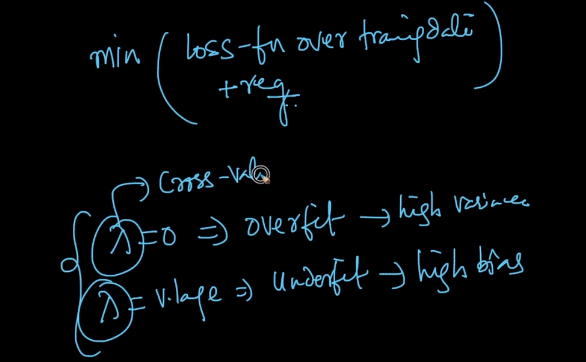 min ( loss-fn over traingdata
+ reg )
Cross-val
λ = 0 ⇒ overfit → high variance
λ = v.large ⇒ underfit → high bias